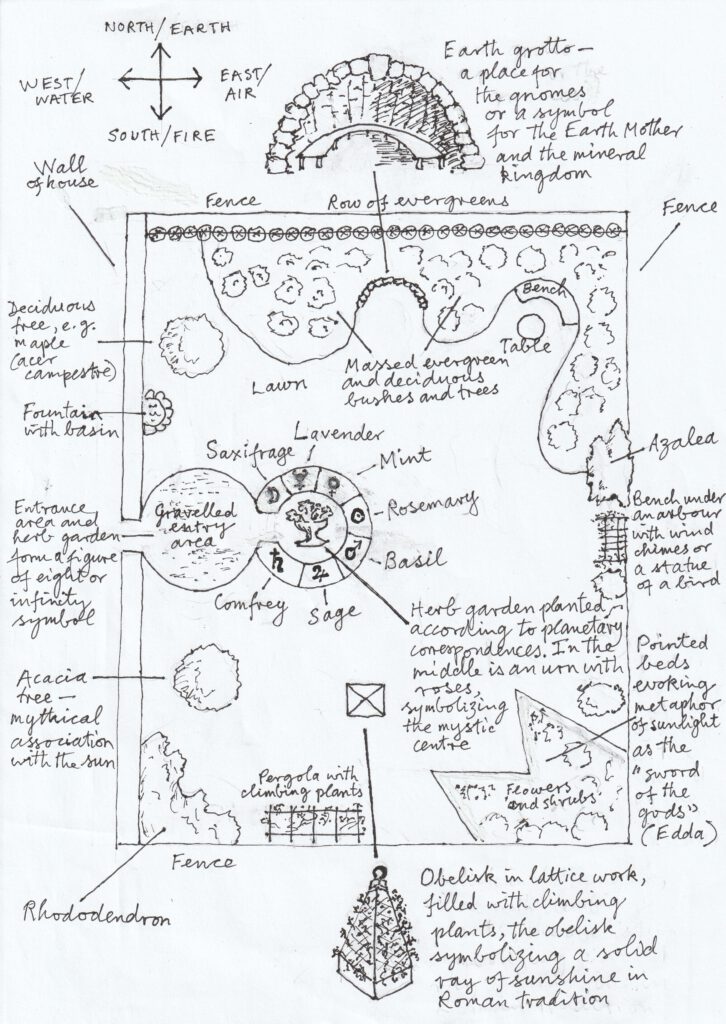 NORTH/EARTH
WEST/
WATER
EAST/
AIR
SOUTH/FIRE
Earth grotto –
a place for
the gnomes
or a symbol
for The Earth Mother
and the mineral
kingdom
Wall
of house
Fence
Row of evergreens
Fence
Bench
Table
Deciduous
tree, e.g.
maple
(acer
campestre)
Massed evergreen
and deciduous
bushes and trees
Lawn
Fountain
with basin
Azalea
Saxifrage
Lavender
Mint
Rosemary
Basil
Sage
Comfrey
Gravelled
entry
area
Entrance
area and
herb garden
form a figure
of eight or
infinity
symbol
Bench under
an arbour
with wind
chimes or
a statue
of a bird
Herb garden planted
according to planetary
correspondences. In the
middle is an urn with
roses,
symbolizing
the mystic
centre
Pointed
beds
evoking
metaphor
of sunlight
as the
"sword
of the
gods"
(Edda)
Acacia
tree –
mythical
association
with the sun
Pergola with
climbing plants
Flowers
and shrubs
Fence
Rhododendron
Obelisk in lattice work,
filled with climbing
plants, the obelisk
symbolizing a solid
ray of sunshine in
Roman tradition